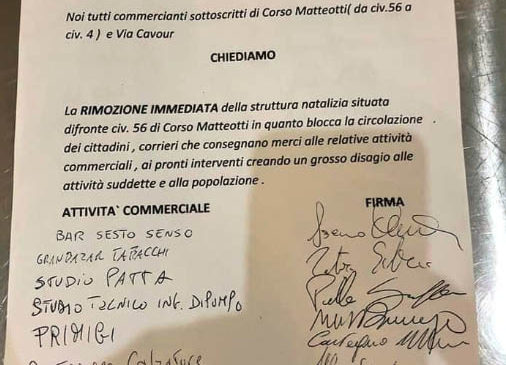 Noi tutti commercianti sottoscritti di Corso Matteotti( da civ.56 a
civ. 4 ) e Via Cavour
CHIEDIAMO
La RIMOZIONE IMMEDIATA della struttura natalizia situata
difronte civ. 56 di Corso Matteotti in quanto blocca la circolazione
dei cittadini , corrieri che consegnano merci alle relative attività
commerciali , ai pronti interventi creando un grosso disagio alle
attività suddette e alla popolazione .
ATTIVITA` COMMERCIALE FIRMA
BAR SESTO SENSO
GRANBAZAR TABACCHI
STUDIO PATTA
STUDIO TECNICO ING. DIPUMPO
PRIMIGI
Calzature